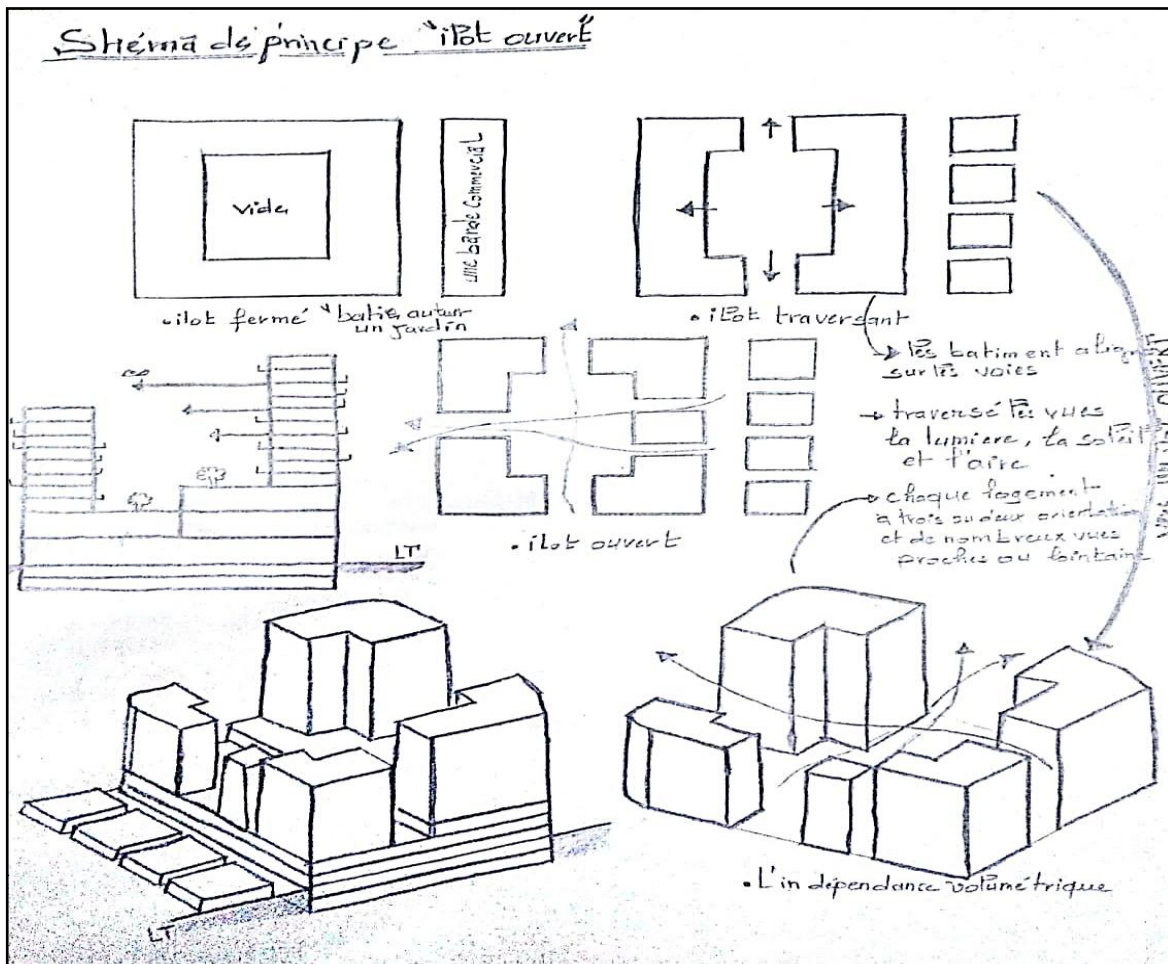 Shéma de principe "ilot ouvert"
vide
une bande commercial
• ilot fermé "batie autour
un jardin
• ilot traversant
→ les batiment alig
sur les voies
→ traversé les vues
la lumiere, la soleil
et l'aire
→ chaque logement
a trois ou deux orientation
et de nombreux vues
proches ou lointaine
• ilot ouvert
LT
LT
• L'in dépendance volumétrique